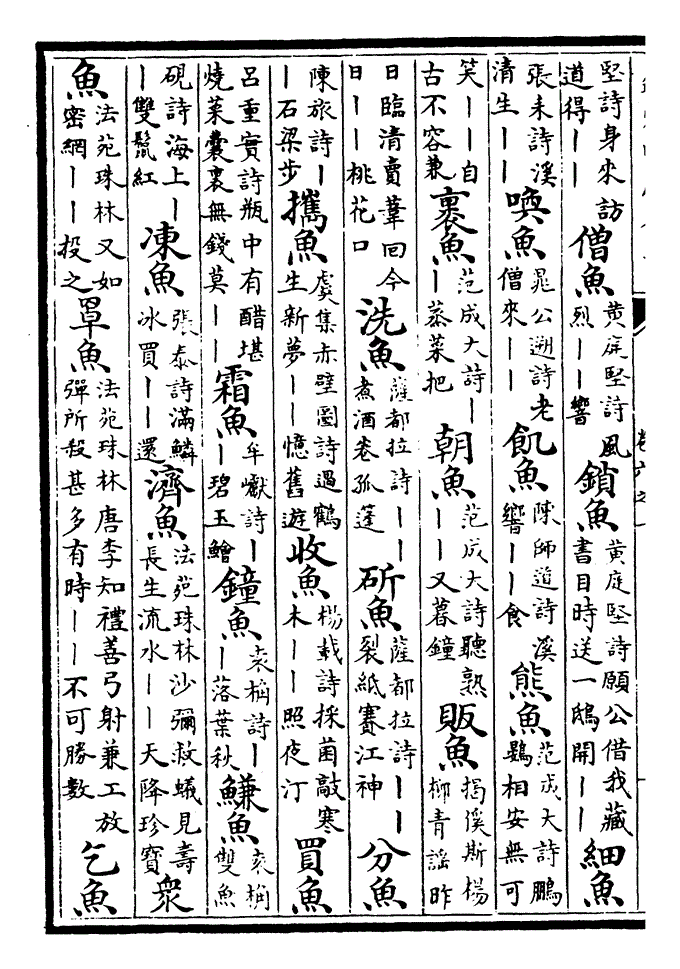 堅詩身來訪道得｜｜僧魚黃庭堅詩風烈｜｜響鎖魚黃庭堅詩願公借我藏書目時送一鴟開｜｜細魚
張耒詩溪清生｜｜喚魚晁公遡詩老僧來｜｜飢魚陳師道詩溪響｜｜食熊魚范成大詩鵬鷃相安無可
笑｜｜自古不容兼裹魚范成大詩｜｜蒸菜把朝魚范成大詩聽熟｜｜又暮鐘販魚揭傒斯楊柳青謡昨
日臨清賣葦回今日｜｜桃花口洗魚薩都拉詩｜｜煮酒卷孤蓬斫魚薩都拉詩｜｜裂紙賽江神分魚
陳旅詩｜｜石梁步攜魚虞集赤壁圖詩過鶴生新夢｜｜憶舊遊收魚楊載詩採菌敲寒木｜｜照夜汀買魚
呂重實詩瓶中有醋堪燒菜囊裏無錢莫｜｜霜魚牟巘詩｜｜碧玉鱠鐘魚袁桷詩｜｜落葉秋鰜魚袁桷雙魚
硯詩海上｜｜雙鬛紅凍魚張泰詩滿鱗冰買｜｜還濟魚法苑珠林沙彌救蟻見壽長生流水｜｜天降珍寶衆
魚法苑珠林又如密網｜｜投之罩魚法苑珠林唐李知禮善弓射兼工放彈所殺甚多有時｜｜不可勝數乞魚